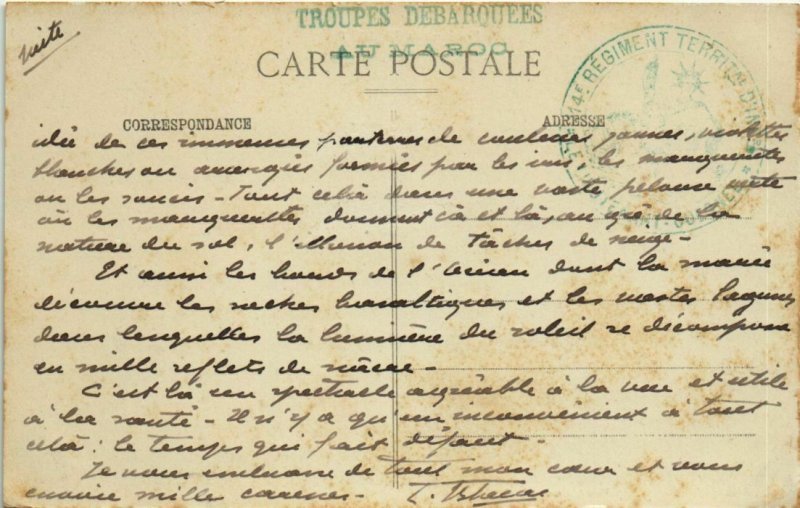 TROUPES DEBARQUEES
AU MAROC
suite
CARTE POSTALE
14E REGIMENT TERRIT
CORRESPONDANCE
ADRESSE
idée de ces immenses de couleurs jaunes, violettes
blanches ou formées par les iris, les marguerites
ou les soucis - Tout celà dans une vaste pelouse verte
où les marguerittes donnent çà et là, au gré de la
nature du sol, l'illusion de tâches de neige -
Et aussi les bords de l'Océan dont la marée
découvre les roches basaltiques et les vastes lagunes
dans lesquelles la lumière du soleil se décompose
en mille reflets de nacre -
C'est là un spectacle agréable à la vue et utile
à la santé - Il n'y a qu'un inconvénient à tout
celà : le temps qui fait défaut -
Je vous embrasse de tout mon cœur et vous
envoie mille caresses -